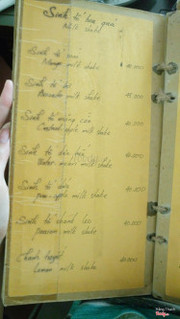 Sinh tố hoa quả
Milk shake
Sinh tố xoài
Mango milk shake 40.000
Sinh tố bơ
Avocado milk shake 40.000
Sinh tố mãng cầu
Custard apple milk shake 40.000
Sinh tố dưa hấu
Water melon milk shake 40.000
Sinh tố dứa
Pineapple milk shake 40.000
Sinh tố chanh leo
Passion milk shake 40.000
Chanh tuyết
Lemon milk shake 40.000